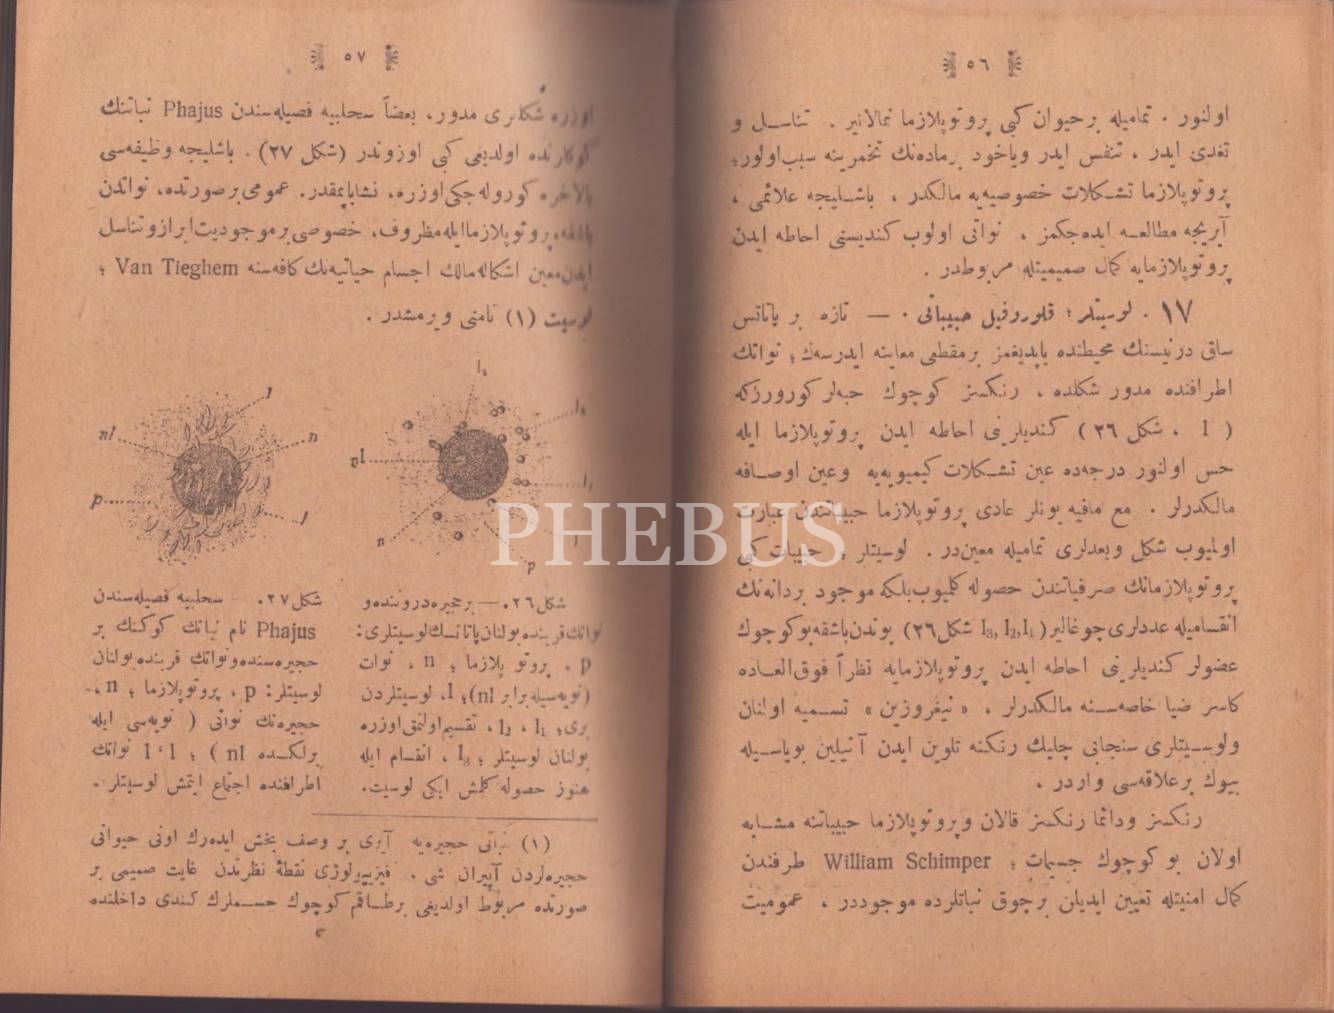 ٥٦
اولنور . تماميله بر حيوان كبى پروتوپلازما نمالانير . تناسل و
تغدى ايدر ، تنفس ايدر وياخود بر ماده‌نك تخمرينه سبب اولور؛
پروتوپلازما تشكلات خصوصيه‌يه مالكدر ، باشليجه علائمى ،
آيريجه مطالعه ايده‌جكمز . نواتى اولوب كنديسنى احاطه ايدن
پروتوپلازمايه كمال صميميتله مربوطدر .
١٧ . لوسيتلر ؛ قلوروفيل حبيباتى . — تازه بر پاتاتس
ساق درنيسنك محيطنده ياپديغمز بر مقطعى معاينه ايدرسه‌ك ؛ نواتك
اطرافنده مدور شكلده ، رنكسز كوچوك حبه‌لر كورورزكه
( l ، شكل ٢٦ ) كنديلرنى احاطه ايدن پروتوپلازما ايله
حس اولنور درجه‌ده عين تشكلات كيميويه‌يه وعين اوصافه
مالكدرلر . مع مافيه بونلر عادى پروتوپلازما حبيباتندن عبارت
اولميوب شكل وبعدلرى تماميله معين‌در . لوسيتلر ، حبيبات كبى
پروتوپلازمانك صرفياتندن حصوله كلميوب بلكه موجود بر دانه‌نك
انقساميله عددلرى چوغالير (l₃, l₂, l₁ شكل ٢٦) بوندن باشقه بو كوچوك
عضولر كنديلرنى احاطه ايدن پروتوپلازمايه نظراً فوق‌العاده
كاسر ضيا خاصه‌سنه مالكدرلر ، « نيغروزين » تسميه اولنان
ولوسيتلرى سنجابى چليك رنكنه تلوين ايدن آنيلين بوياسيله
بيوك بر علاقه‌سى واردر .
رنكسز ودائما رنكسز قالان وپروتوپلازما حبيباتنه مشابه
اولان بو كوچوك جسيمات ؛ William Schimper طرفندن
كمال امنيتله تعيين ايديلن بر چوق نباتلرده موجوددر ، عموميت
٥٧
اوزره شكللرى مدور ، بعضاً سحلبيه فصيله‌سندن Phajus نباتنك
كوكلرنده اولديغى كبى اوزوندر (شكل ٢٧) . باشليجه وظيفه‌سى
بالآخره كوروله‌جكى اوزره ، نشا ياپمقدر . عمومى بر صورتده ، نواتدن
باشقه ، پروتوپلازما ايله مظروف ، خصوصى بر موجوديت ابراز وتناسل
ايدن معين اشكاله مالك اجسام حياتيه‌نك كافه‌سنه Van Tieghem ؛
لوسيت (١) نامنى ويرمشدر .
l₃
l₂
l₁
l
nl
n
p
l
nl
n
p
l
شكل ٢٦ . — بر حجيره دروننده و
نواتك قربنده بولنان پاتاتسك لوسيتلرى :
p ، پروتو پلازما ؛ n ، نوات
(نويه‌سيله برابر nl) ؛ l ، لوسيتلردن
برى ؛ l₁ ، l₂ ، تقسيم اولنمق اوزره
بولنان لوسيتلر ؛ l₃ ، انقسام ايله
هنوز حصوله كلمش ايكى لوسيت .
شكل ٢٧ . — سحلبيه فصيله‌سندن
Phajus نام نباتك كوكنك بر
حجيره‌سنده ونواتك قربنده بولنان
لوسيتلر : p ، پروتوپلازما ؛ n ،
حجيره‌نك نواتى ( نويه‌سى ايله
برلكده nl ) ؛ l ، l نواتك
اطرافنده اجتماع ايتمش لوسيتلر .
(١) نباتى حجيره‌يه آيرى بر وصف بخش ايده‌رك اونى حيوانى
حجيره‌لردن آييران شى ، فيزيولوژى نقطهٔ نظرندن غايت صميمى بر
صورتده مربوط اولديغى بر طاقم كوچوك جسملرك كندى داخلنده
PHEBUS